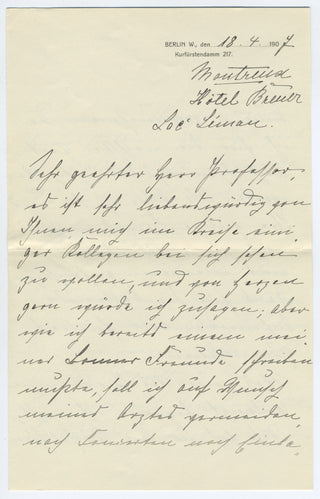 BERLIN W., den 18. 4. 1907
Kurfürstendamm 217.
Montreux
Hôtel Breuer
Lac Léman.
Sehr geehrter Herr Professor,
es ist sehr liebenswürdig von
Ihnen, mich im Kreise eini-
ger Kollegen bei sich sehen
zu wollen, und von Herzen
gern würde ich zusagen; aber
wie ich bereits einem mei-
ner Freunde schreiben
mußte, soll ich auf Wunsch
meines Arztes vermeiden,
nach Konzerten noch Einla-